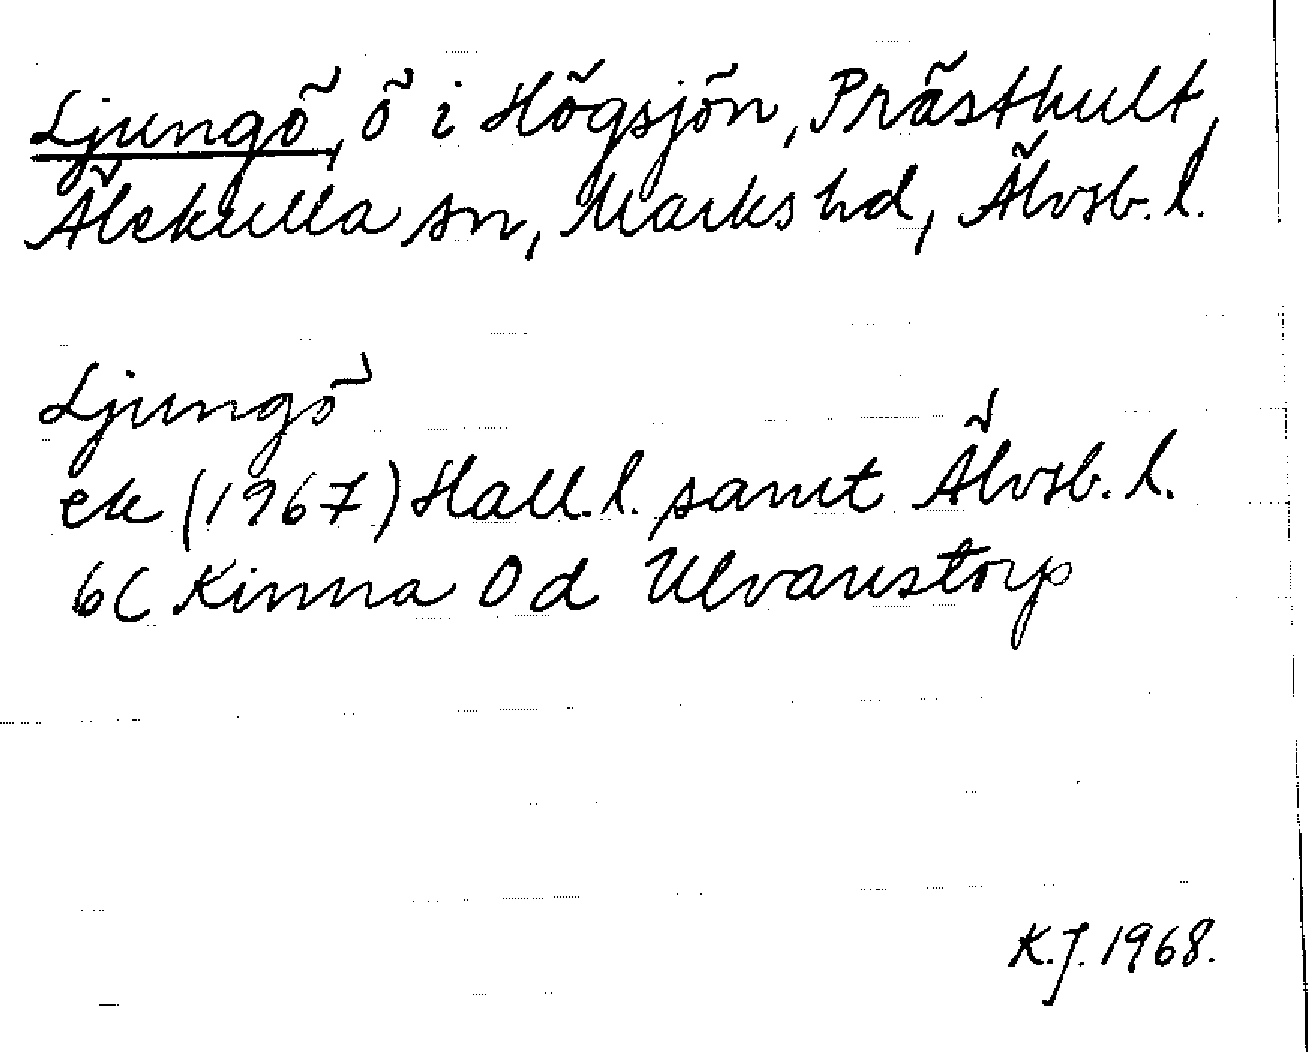 Ljungö, ö i Högsjön, Prästhult,
Älekulla sn, Marks hd, Älvsb. l.
Ljungö
ek (1967) Hall. l. samt Älvsb. l.
6C Kinna 0d Ulvanstorp
K.J. 1968.